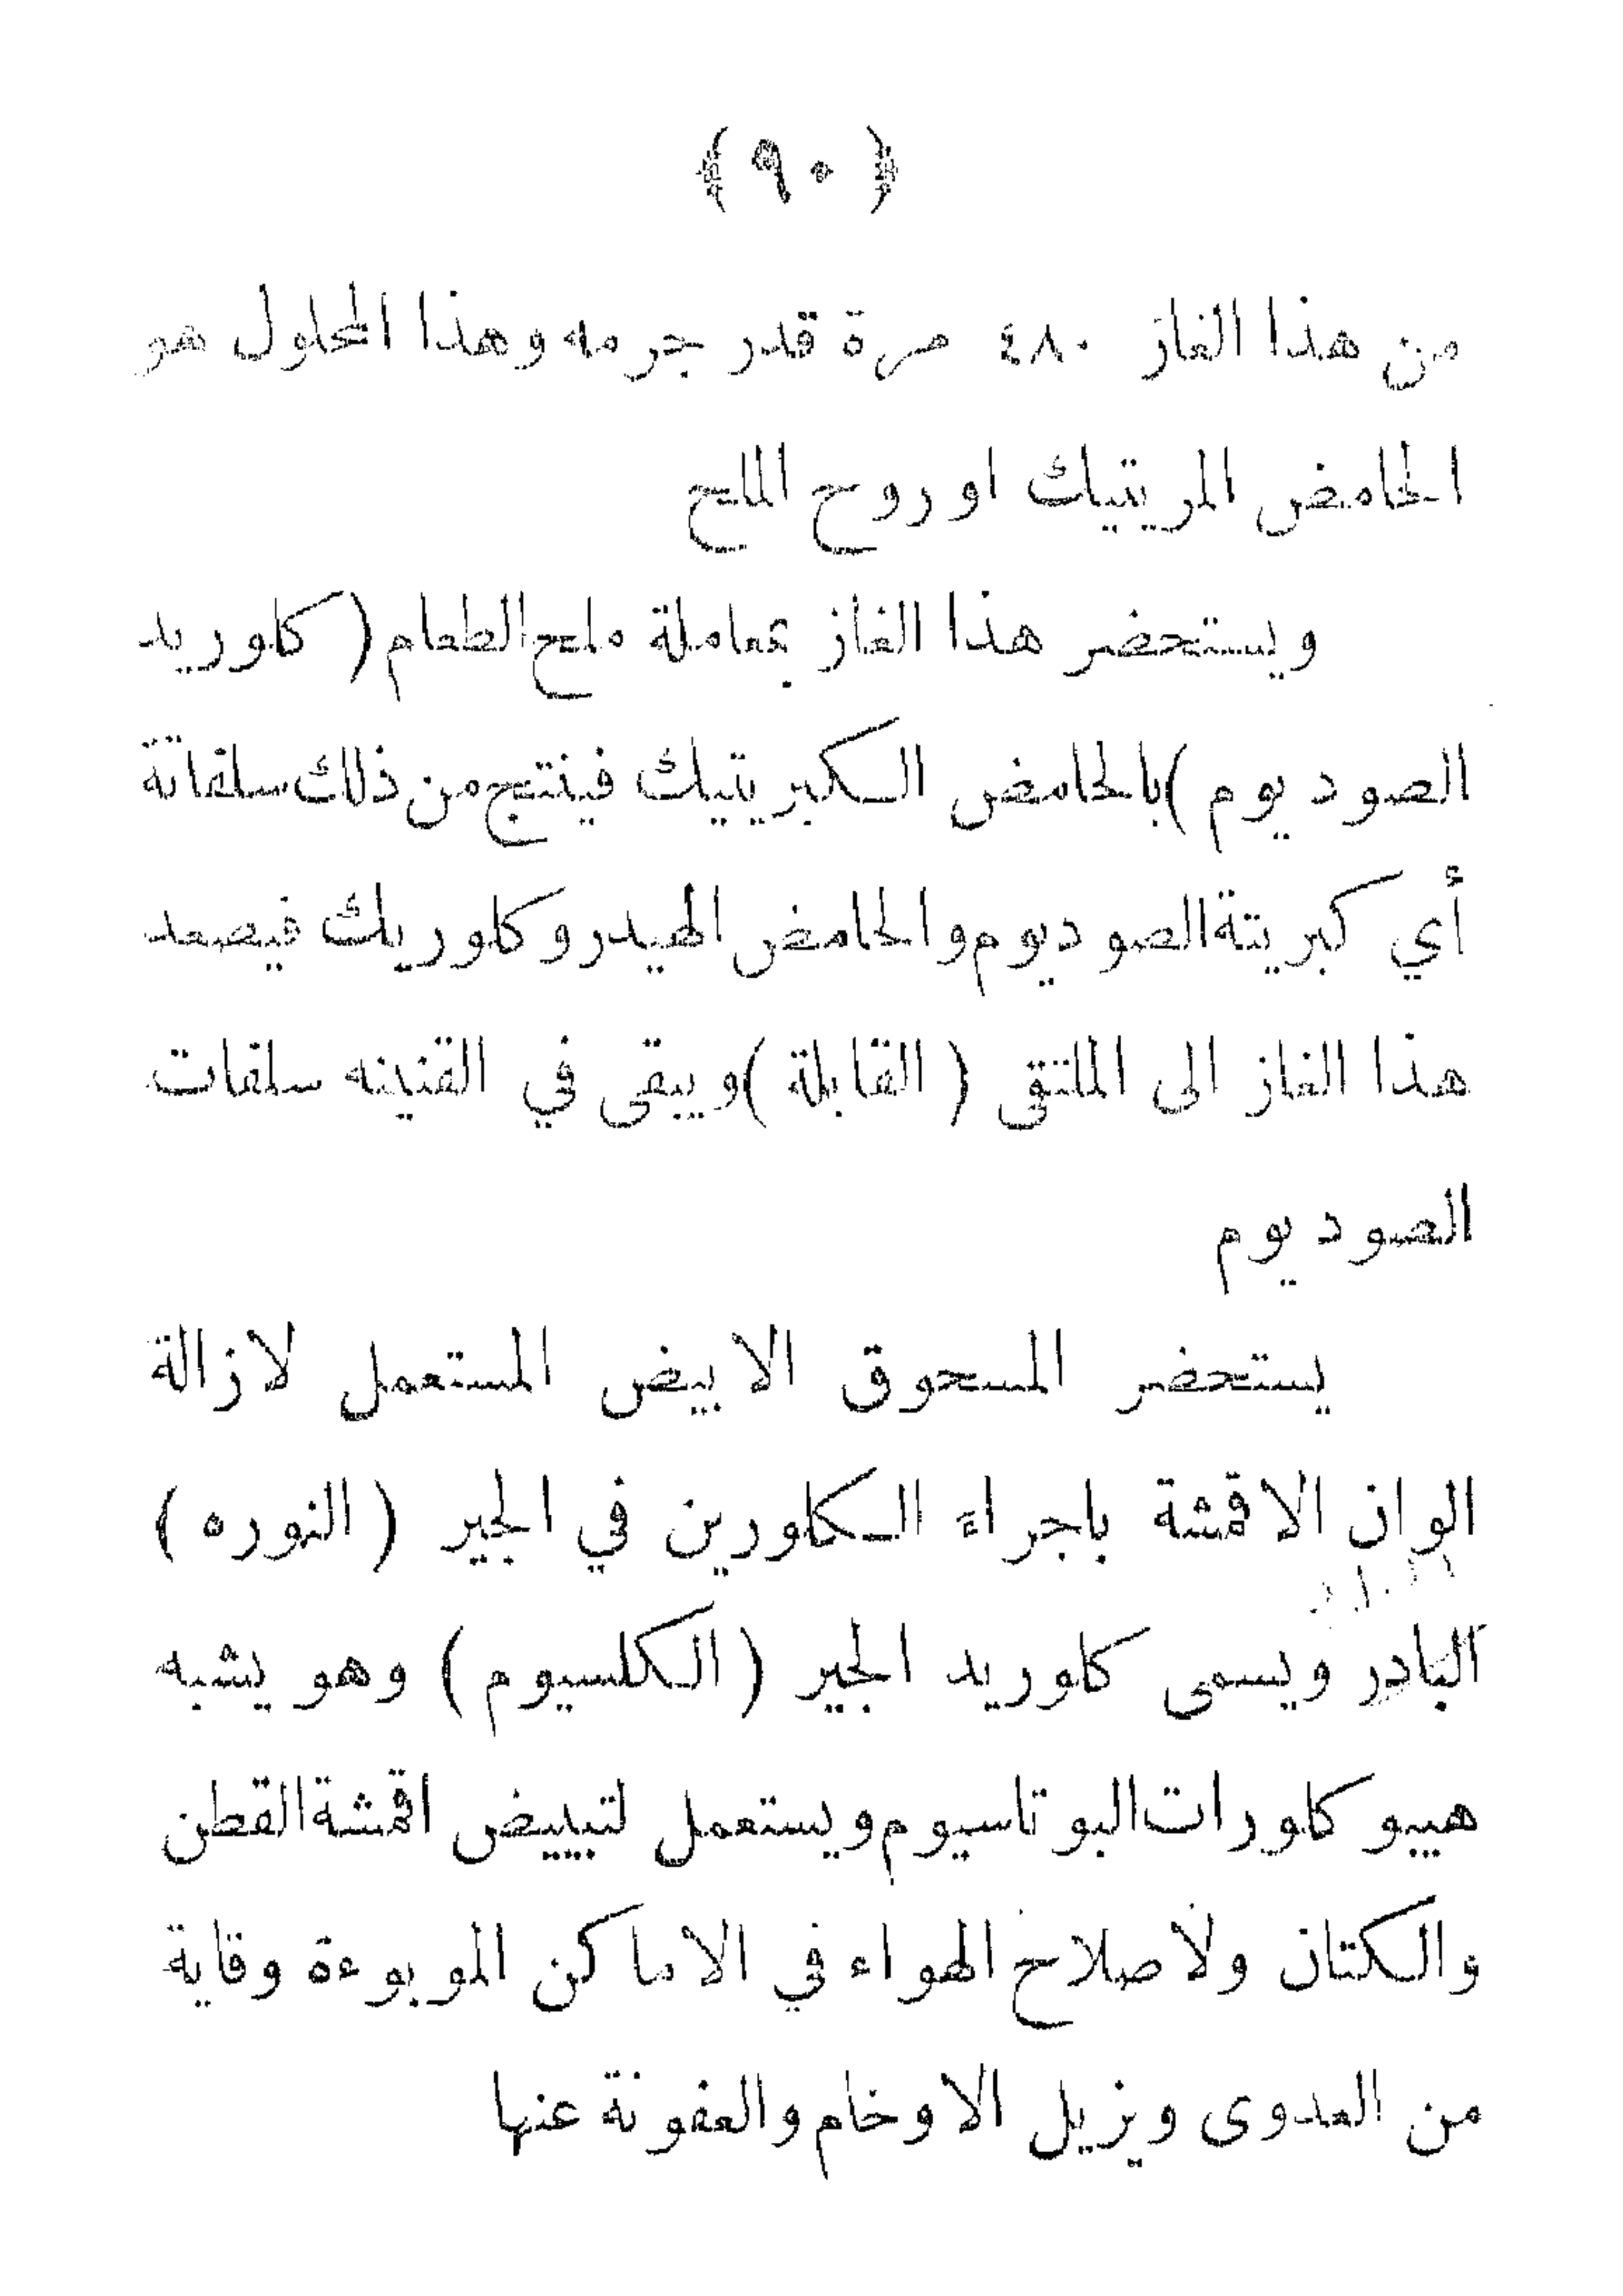 ﴿ ٩٠ ﴾
من هذا الغاز ٤٨٠ مرة قدر جرمه وهذا المحلول هو
الحامض المريتيك او روح الملح
ويستحضر هذا الغاز بمعاملة ملح الطعام ( كلوريد
الصوديوم ) بالحامض الكبريتيك فينتج من ذلك سلفاتة
أي كبريتة الصوديوم والحامض الهيدروكلوريك فيصعد
هذا الغاز الى الملتقى ( القابلة ) ويبقى في القنينه سلفات
الصوديوم
يستحضر المسحوق الابيض المستعمل لازالة
الوان الاقمشة باجراء الكلورين في الجير ( النوره )
البادر ويسمى كلوريد الجير ( الكلسيوم ) وهو يشبه
هيبو كلورات البوتاسيوم ويستعمل لتبييض اقمشة القطن
والكتان ولاصلاح الهواء في الاماكن الموبوءة وقاية
من العدوى ويزيل الاوخام والعفونة عنها